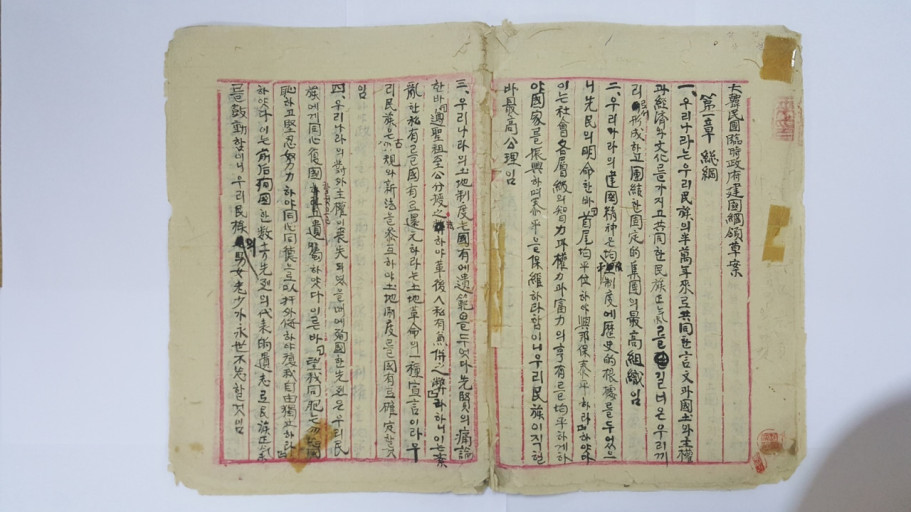 大韓民國臨時政府建國綱領草案
第一章 總綱
一、우리나라는우리民族의半萬年來로共同한言文과國土와主權
과經濟와文化를가지고共同한民族正氣를길너온우리끼
리形成하고團結한固定的集團의最高組織임
二、우리나라의建國精神은三均制度에歷史的根據를두엇으
니先民의明命한바首尾均平位하야興邦保泰平하리라하야다
이는社會各層級의智力과權力과富力의享有를均平하게하
야國家를振興하며泰平을保維하라함이니우리民族이지킬
바最高公理임
三、우리나라의土地制度는國有에遺範을두엇다先賢의痛論
한바遵聖祖至公分授之法하야革後人私有兼倂之弊라하니이는紊
亂한私有를國有로還元하라는土地革命의一種宣言이라우
리民族은古規와新法을參互하야土地制度를國有로確定할것
임
四、우리나라의對外主權이喪失되엿을때에殉國한先烈은우리民
族에게同心復國할것을遺囑하엿다이른바望我同胞는勿忘國
恥하고堅忍努力하야同心同德으로以扞外侮하야復我自由獨立하라
하엿다이는前后殉國한數十万先烈의代表的遺志로民族正氣
를鼓動함이니우리民族의男女老少가永世不忘할것임